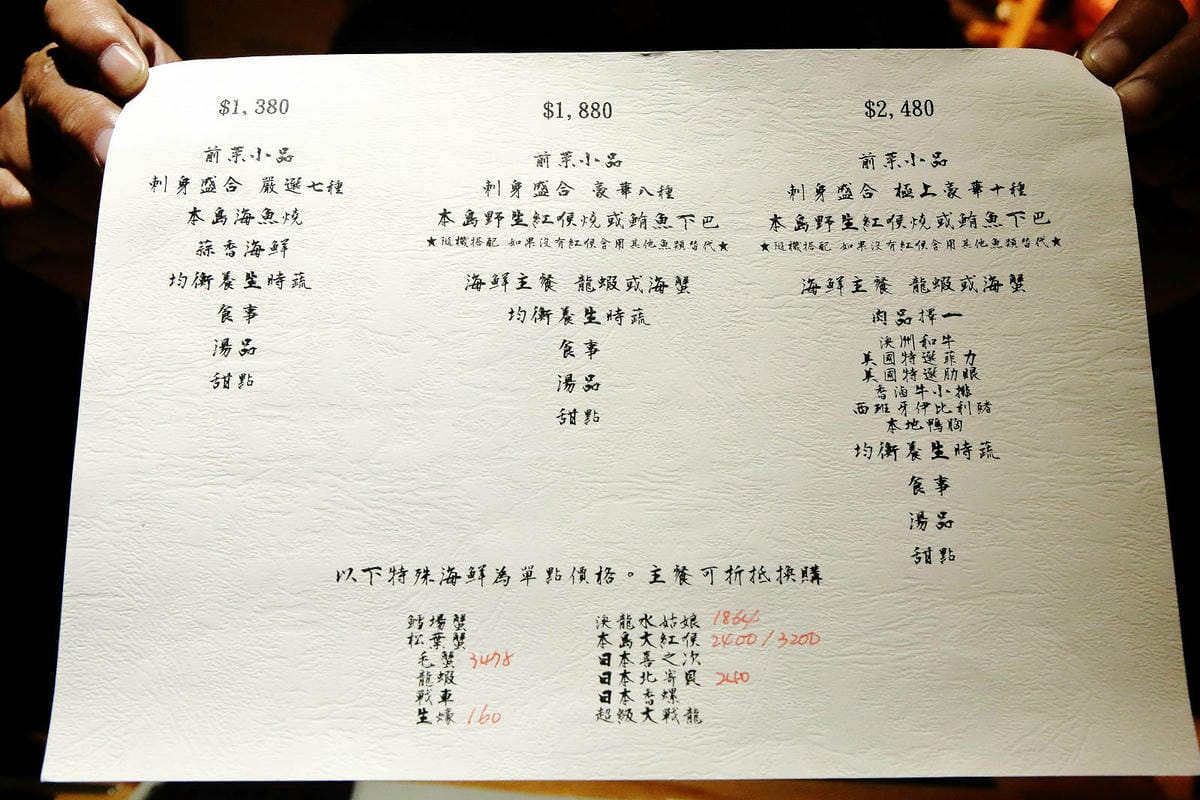 $1,380
前菜小品
刺身盛合 嚴選七種
本島海魚燒
蒜香海鮮
均衡養生時蔬
食事
湯品
甜點
$1,880
前菜小品
刺身盛合 豪華八種
本島野生紅喉燒或鮪魚下巴
★隨機搭配 如果沒有紅喉會用其他魚類替代★
海鮮主餐 龍蝦或海蟹
均衡養生時蔬
食事
湯品
甜點
$2,480
前菜小品
刺身盛合 極上豪華十種
本島野生紅喉燒或鮪魚下巴
★隨機搭配 如果沒有紅喉會用其他魚類替代★
海鮮主餐 龍蝦或海蟹
肉品擇一
澳洲和牛
美國特選菲力
美國特選肋眼
香滷牛小排
西班牙伊比利豬
本地鴨胸
均衡養生時蔬
食事
湯品
甜點
以下特殊海鮮為單點價格。主餐可折抵換購
鱈場蟹
松葉蟹
毛蟹 3478
龍蝦
戰車
生蠔 160
澳龍水姑娘
本島大紅喉 2400/3200
日本喜之次
日本北寄貝 240
日本香螺
超級大戰龍